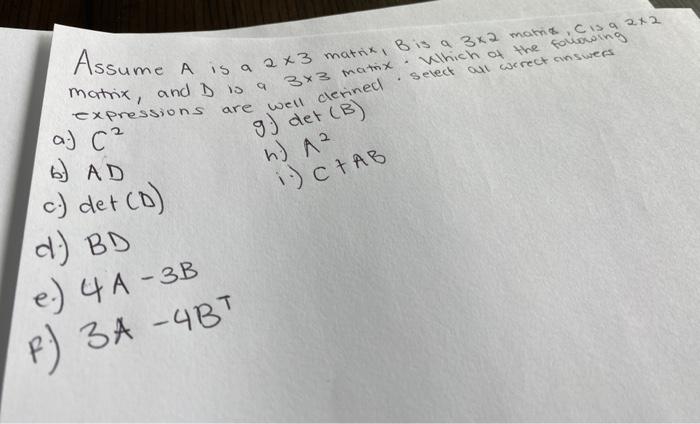 Assume A is a 2x3 matrix, B is a 3x2 matrix, C is a 2x2
matrix, and D is a 3x3 matrix. Which of the following
expressions are well defined. select all correct answers
a.) C²
b) AD
c.) det(D)
d.) BD
e.) 4A - 3B
f) 3A - 4Bᵀ
g.) det(B)
h.) A²
i.) C + AB